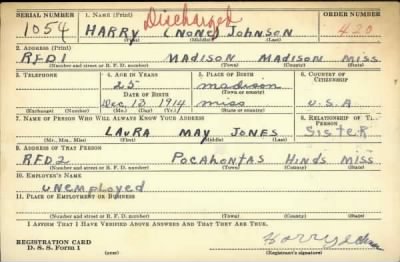 Discharged
SERIAL NUMBER 1. NAME (Print) ORDER NUMBER
1054 HARRY (NONE) Johnson 420
(First) (Middle) (Last)
2. ADDRESS (Print)
RFD1 MADISON MADISON MISS
(Number and street or R. F. D. number) (Town) (County) (State)
3. TELEPHONE 4. AGE IN YEARS 5. PLACE OF BIRTH 6. COUNTRY OF CITIZENSHIP
25 madison
DATE OF BIRTH (Town or county)
Dec. 13 1914 miss U.S.A
(Exchange) (Number) (Mo.) (Day) (Yr.) (State or country)
7. NAME OF PERSON WHO WILL ALWAYS KNOW YOUR ADDRESS 8. RELATIONSHIP OF THAT PERSON
LAURA MAY JONES SISTER
(Mr., Mrs., Miss) (First) (Middle) (Last)
9. ADDRESS OF THAT PERSON
RFD2 POCAHONTAS HINDS MISS
(Number and street or R. F. D. number) (Town) (County) (State)
10. EMPLOYER'S NAME
unemployed
11. PLACE OF EMPLOYMENT OR BUSINESS
(Number and street or R. F. D. number) (Town) (County) (State)
I AFFIRM THAT I HAVE VERIFIED ABOVE ANSWERS AND THAT THEY ARE TRUE.
REGISTRATION CARD
D. S. S. Form 1
(Registrant's signature)